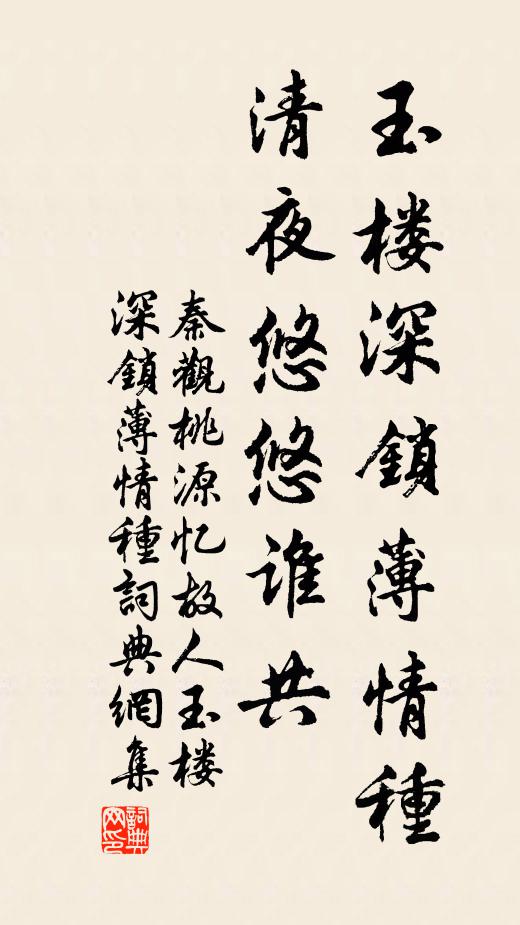 玉楼深鎖薄情種
清夜悠悠谁共
秦觀桃源忆故人玉楼
深鎖薄情種詞典網集
詞典
网印